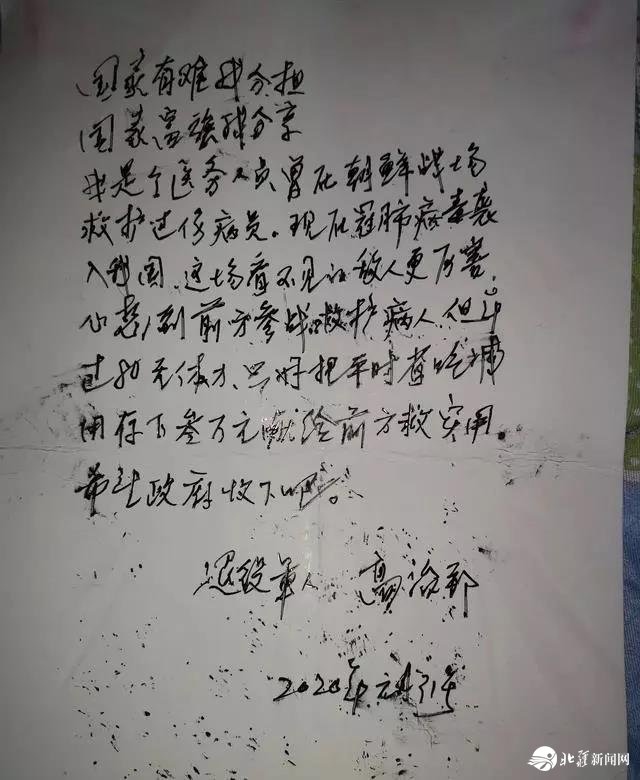 国家有难我分担
国家富强我分享
我是个医务人员曾在朝鲜战场
救护过伤病员.现在冠肺病毒袭
入我国.这场看不见的敌人更厉害.
心想到前方参战救护病人.但年
过80无体力.只好把平时省吃
用存下叁万元献给前方救灾用.
希望政府收下吧。
退役军人 高治
2020年元月31号
北疆新闻网